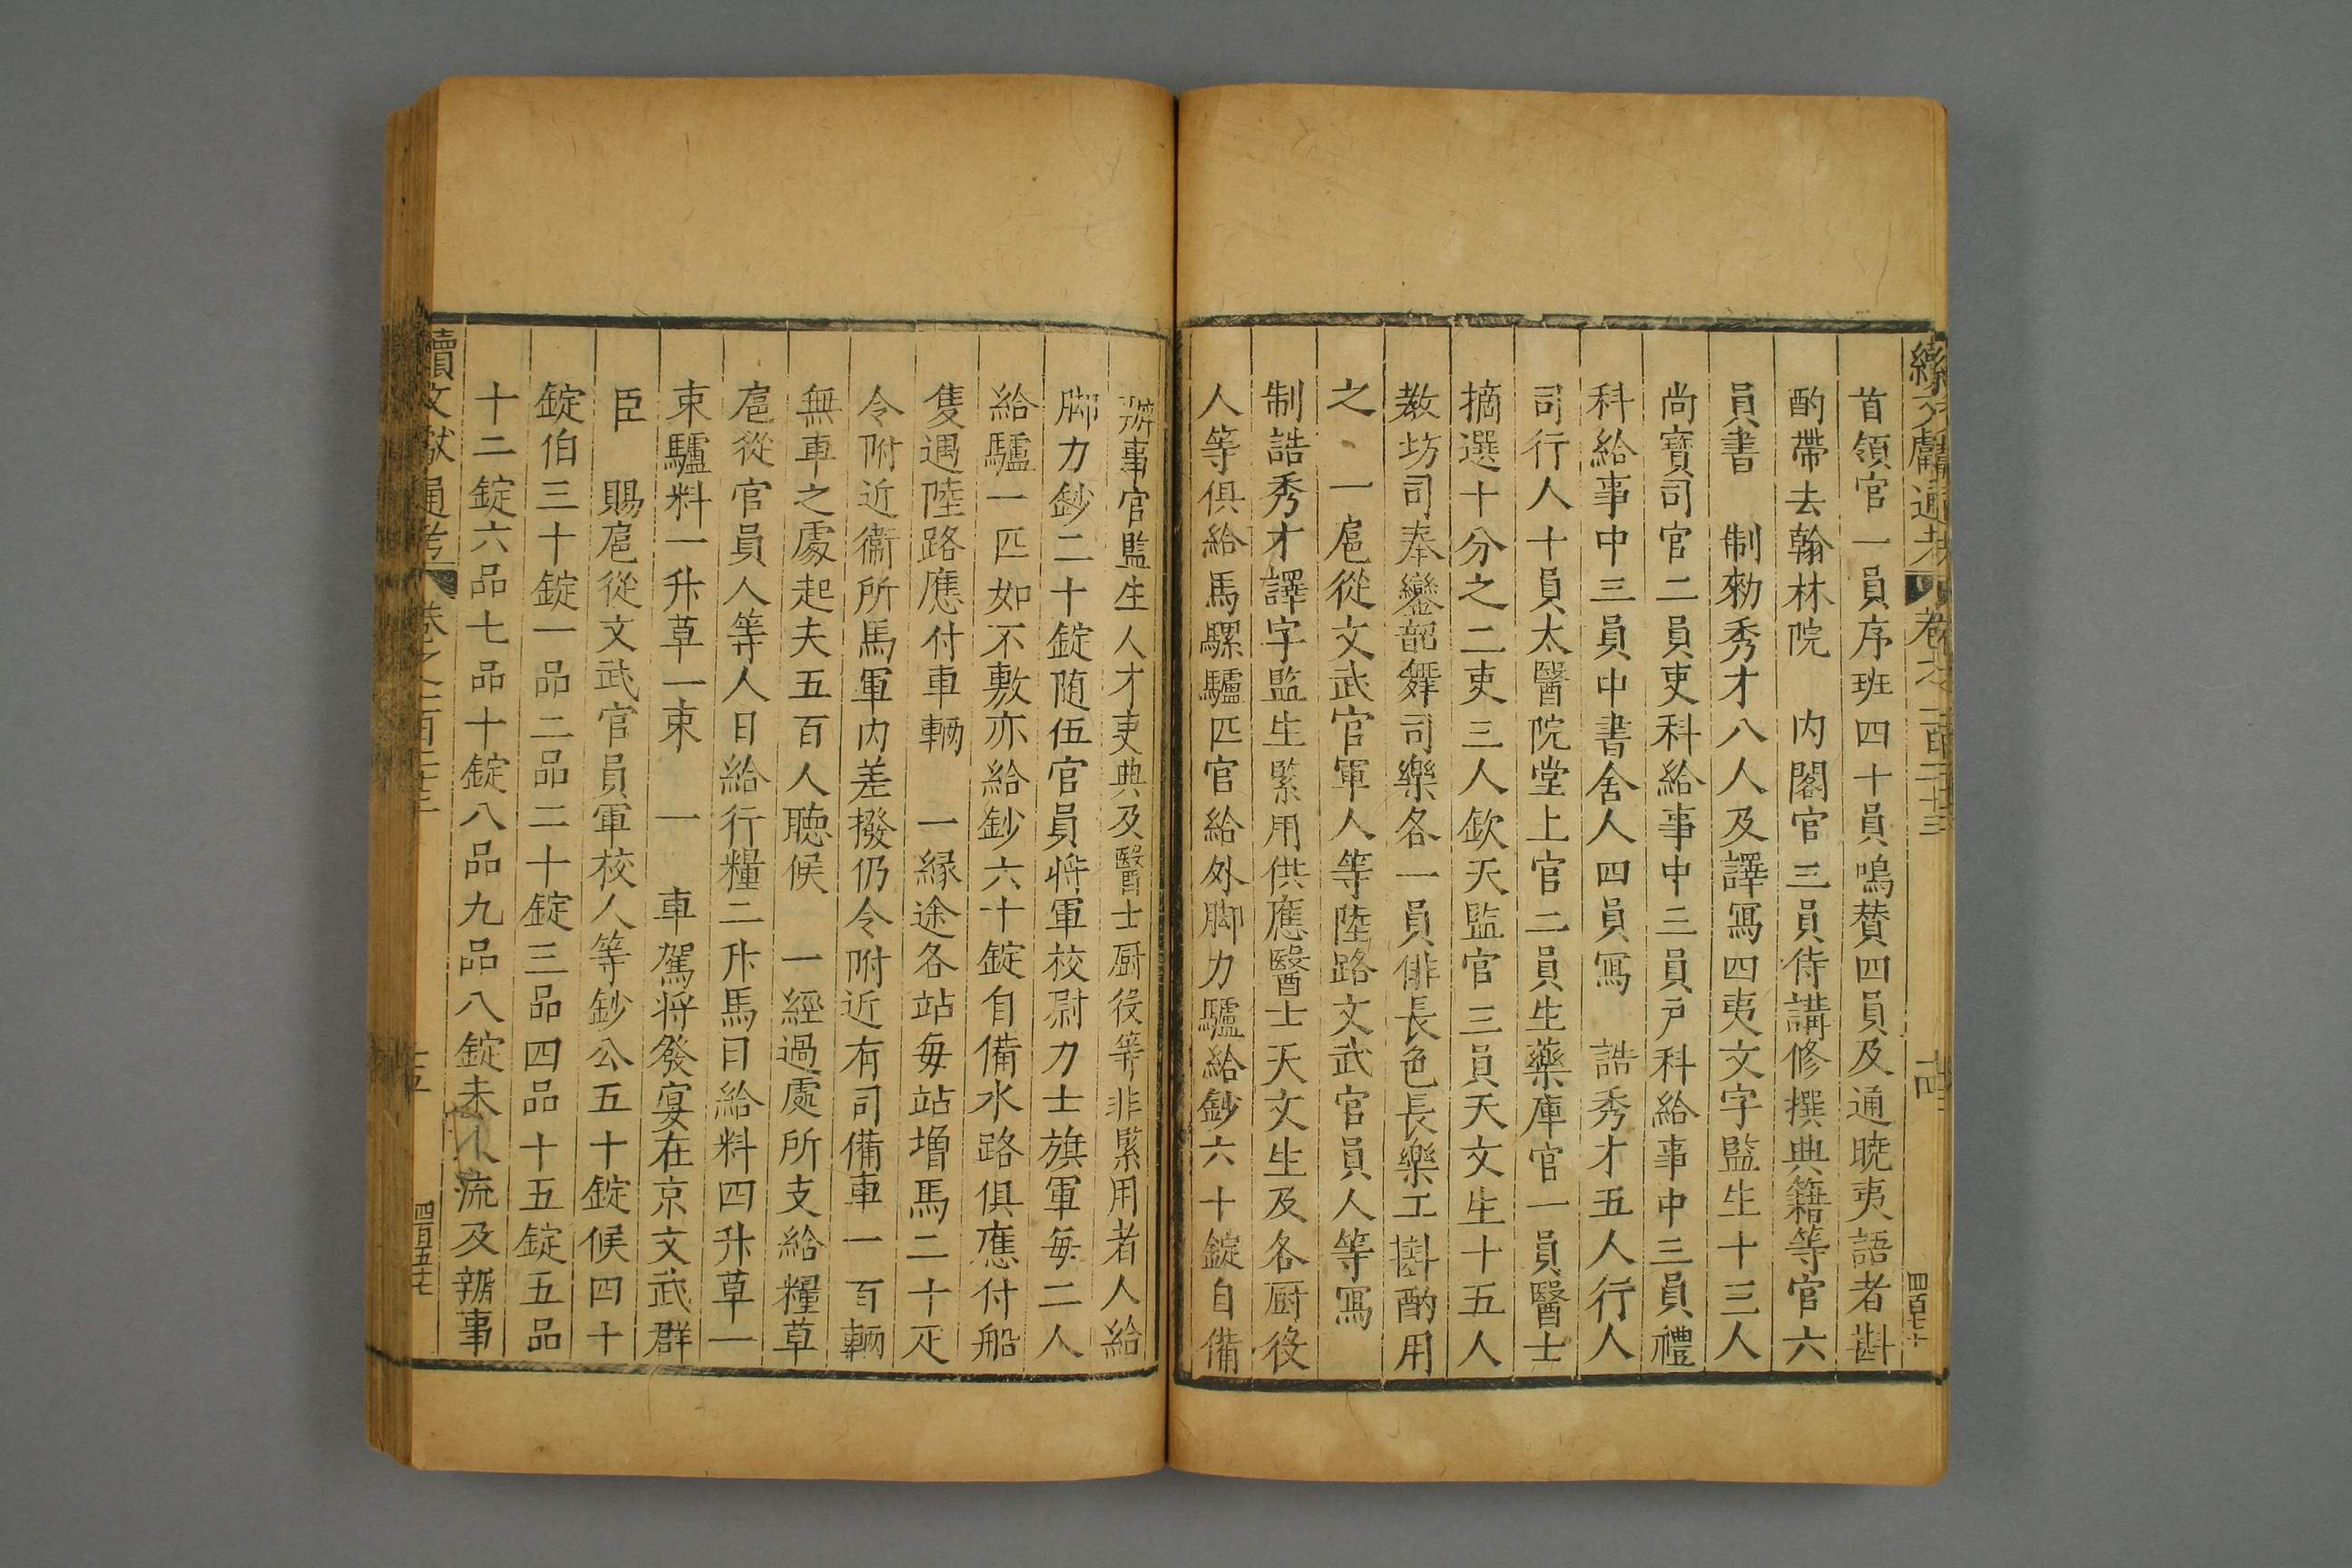 續文獻通考 卷之一百二十三 十四
首領官一員序班四十員鳴賛四員及通曉夷語者斟
酌帶去翰林院 内閣官三員侍講修撰典籍等官六
員書 制勑秀才八人及譯寫四夷文字監生十三人
尚寶司官二員吏科給事中三員戸科給事中三員禮
科給事中三員中書舍人四員寫 誥秀才五人行人
司行人十員太醫院堂上官二員生藥庫官一員醫士
摘選十分之二吏三人欽天監官三員天文生十五人
教坊司奉鑾韶舞司樂各一員俳長色長樂工斟酌用
之 一扈從文武官軍人等陸路文武官員人等寫
制誥秀才譯字監生緊用供應醫士天文生及各厨役
人等俱給馬騾驢匹官給外脚力驢給鈔六十錠自備
辦事官監生人才吏典及醫士厨役等非緊用者人給
脚力鈔二十錠随伍官員將軍校尉力士旗軍每二人
給驢一匹如不敷亦給鈔六十錠自備水路俱應付船
隻遇陸路應付車輛 一緣途各站每站增馬二十疋
令附近衞所馬軍内差撥仍令附近有司備車一百輛
無車之處起夫五百人聽候 一經過處所支給糧草
扈從官員人等人日給行糧二升馬日給料四升草一
束驢料一升草一束 一 車駕將發宴在京文武群
臣 賜扈從文武官員軍校人等鈔公五十錠候四十
錠伯三十錠一品二品二十錠三品四品十五錠五品
十二錠六品七品十錠八品九品八錠未入流及辦事
續文獻通考 卷之一百二十三 十五